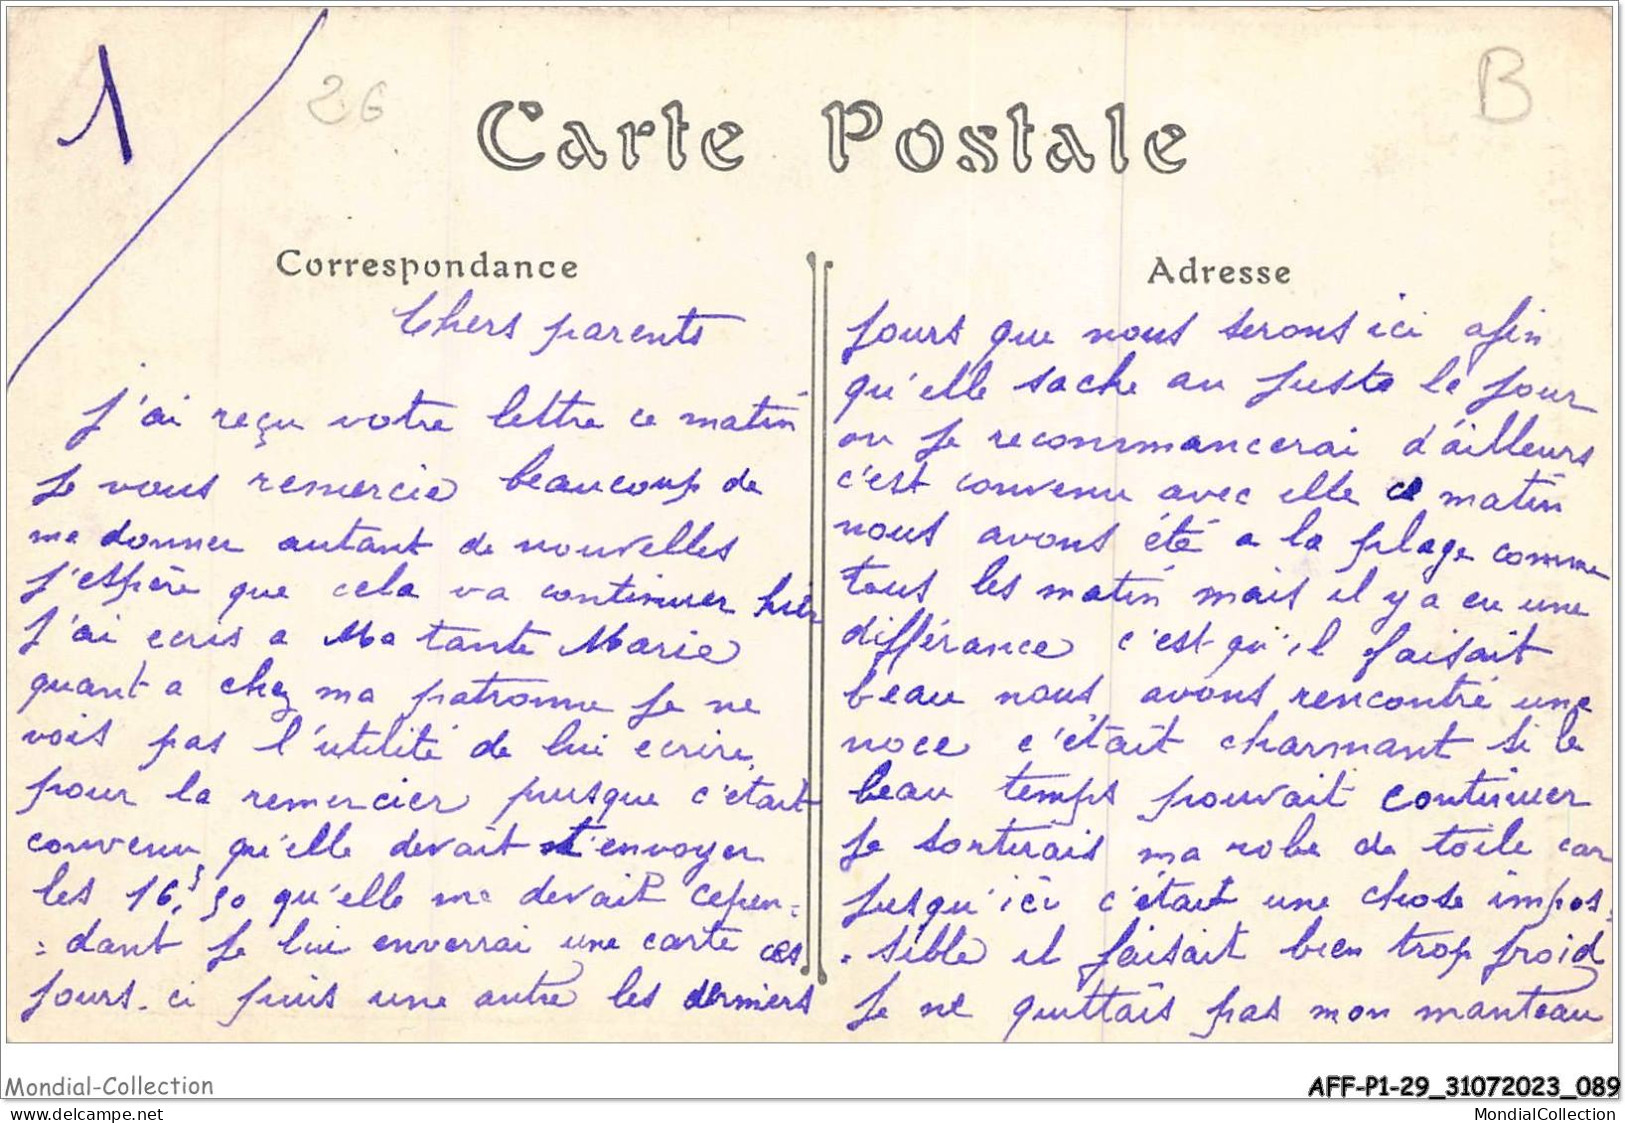 1
26
B
Carte Postale
Correspondance
Chers parents
J'ai reçu votre lettre ce matin
Je vous remercie beaucoup de
me donner autant de nouvelles
J'espère que cela va continuer hier
J'ai ecris a Ma tante Marie
quant a chez ma patronne je ne
vois pas l'utilité de lui ecrire
pour la remercier pusque c'etait
convenu qu'elle devait t'envoyer
les 16,50 qu'elle me devait cepen=
=dant je lui enverrai une carte ces
jours-ci puis une autre les derniers
Adresse
jours que nous serons ici afin
qu'elle sache au juste le jour
ou je recommancerai d'ailleurs
c'est convenu avec elle ce matin
nous avons été a la plage comme
tous les matin mais il y a eu une
différance c'est qu'il faisait
beau nous avons rencontré une
noce c'était charmant si le
beau temps pouvait continuer
Je sortirais ma robe de toile car
jusqu'ici c'était une chose impos=
=sible il faisait bien trop froid
Je ne quittais pas mon manteau
Mondial-Collection
AFF-P1-29_31072023_089
www.delcampe.net
MondialCollection